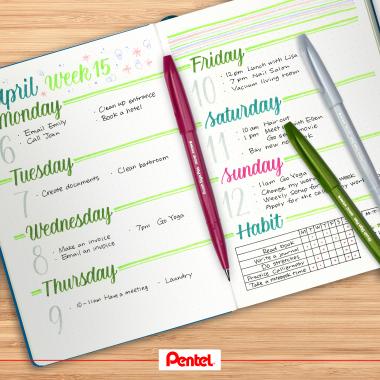 April Week 15
Monday
6
· Email Emily
Call Joan
· Clean up entrance
Book a hotel
Tuesday
7
· Create documents
· Clean bathroom
Wednesday
8
· Make an invoice
· Email an invoice
· 7pm Go Yoga
Thursday
9
· 10-11am Have a meeting
· Laundry
Friday
10
· 12pm Lunch with Lisa
· 7pm Nail Salon
· Vacuum living room
Saturday
11
· 10am Hair cut
· 1pm Meet with Ellen
· Go see movie
Buy new
Sunday
12
· 11am Go Yoga
· Change my
· Weekly
Apply for the
Habit
M T W T F S S
Read book
Write a journal
Do stretches
Practice Calligraphy
Take a moment
Pentel